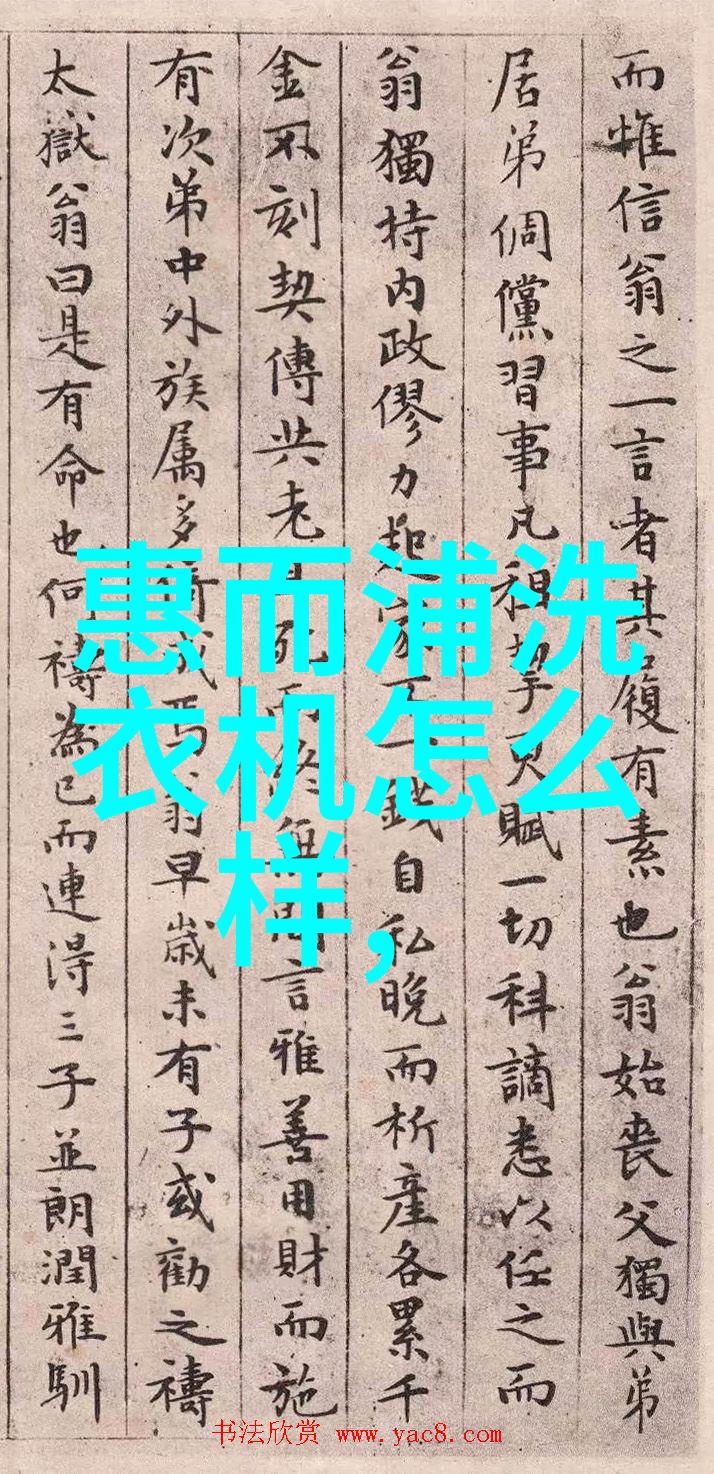 而惟信翁之一言者其履有素也翁始丧父獨與弟
居弟倜儻習事凡租挈更賦一切科謫悉以任之而
翁獨持内政僇力起家不一錢自私晚而析産各累千
金不刻契傳共老且死而終無間言雅善用財而施
有次弟中外族属多衍成焉翁早歳未有子或勸之禱
太嶽翁曰是有命也何禱為已而連得三子並朗潤雅馴
惠而浦洗
衣机怎么
样,
书法欣赏 www.yac8.com